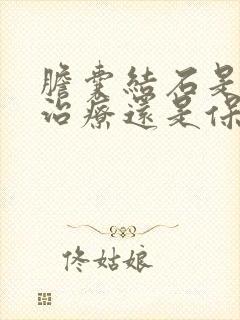 膽囊結石是
治療還是保
佟姑娘